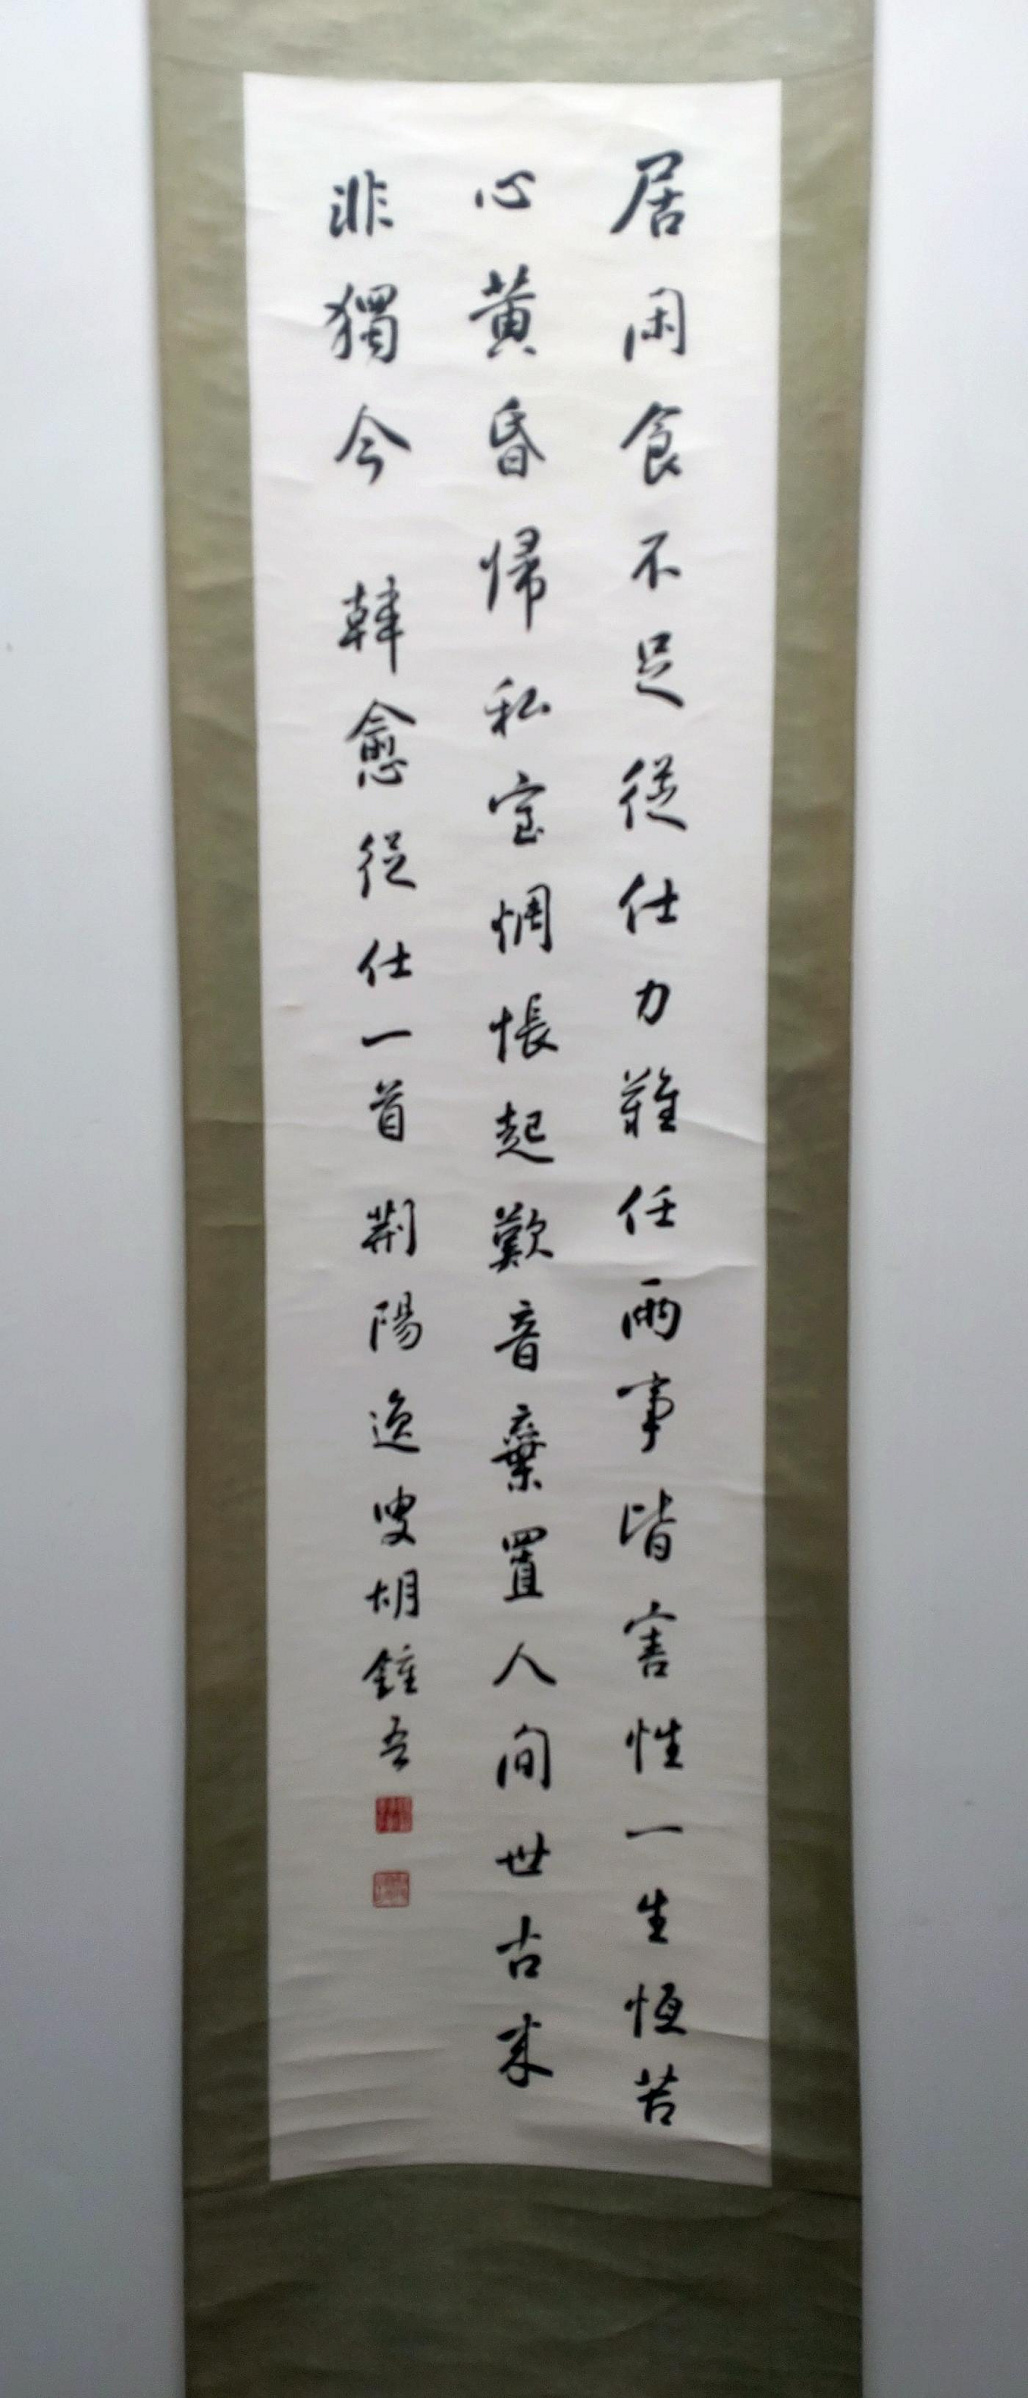 居闲食不足從仕力難任兩事皆害性一生恒苦
心黄昏歸私室惆悵起歎音棄置人间世古来
非獨今 韓愈從仕一首 荆陽逸叟胡鍾吾